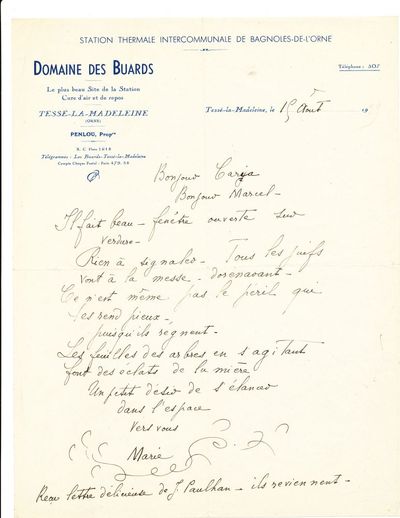 STATION THERMALE INTERCOMMUNALE DE BAGNOLES-DE-L'ORNE
DOMAINE DES BUARDS
Téléphone : 307
Le plus beau Site de la Station
Cure d'air et de repos
TESSÉ-LA-MADELEINE
(ORNE)
Tessé-la-Madeleine, le 15 Août 19
PENLOU, Prop
R. C. 1618
Télégrammes : Les Buards-Tessé-la-Madeleine
Compte Chèque Postal : Paris
Bonjour
Bonjour Marcel -
Il fait beau - fenêtre ouverte sur
verdure -
Rien à signaler - Tous les juifs
vont à la messe - dorenavant -
Ce n'est même pas le péril qui
les rend pieux -
puisqu'ils règnent -
Les feuilles des arbres en s'agitant
font des éclats de lumière
Un petit désir de s'élancer
dans l'espace
Vers vous
Marie
Reçu lettre délicieuse de J. Paulhan - ils reviennent -